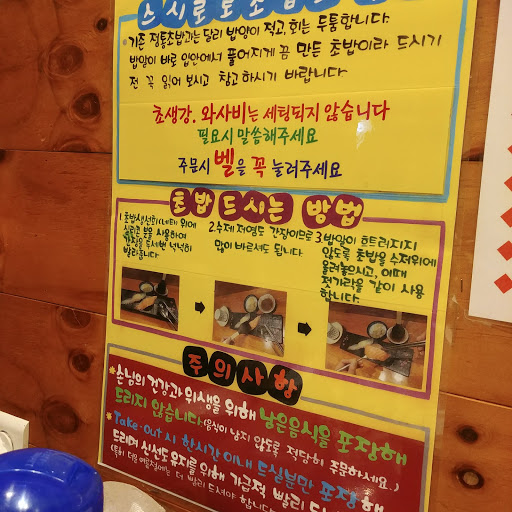 스시로로초밥
*기존 정통초밥과는 달리 밥양이 적고, 회는 두툼합니다.
밥알이 바로 입안에서 풀어지게끔 만든 초밥이라 드시기
전 꼭 읽어 보시고 참고하시기 바랍니다.
초생강. 와사비는 세팅되지 않습니다
필요시 말씀해주세요
주문시 벨을 꼭 눌러주세요
초밥 드시는 방법
1 초밥생선회(네타) 위에
붓을 사용하여
간장을 두세번 넉넉히
발라줍니다
2 수제 저염도 간장이므로
많이 바르셔도 됩니다
3 밥알이 흐트러지지
않도록 초밥을 수저위에
올려놓으시고, 이때
젓가락을 같이 사용
합니다.
주의사항
*손님의 건강과 위생을 위해 남은음식을 포장해
드리지 않습니다.(음식이 남지 않도록 적당히 주문하세요.)
*Take-Out시 한시간 이내 드실분만 포장해
드리며 신선도 유지를 위해 가급적 빨리 드
(특히 더운 여름철에는 더 빨리 드셔야 합니다